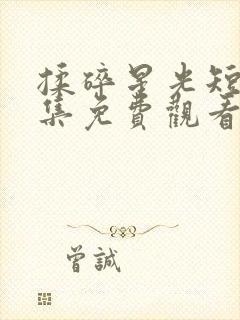 揉碎星光短
集免費觀看
曾誠